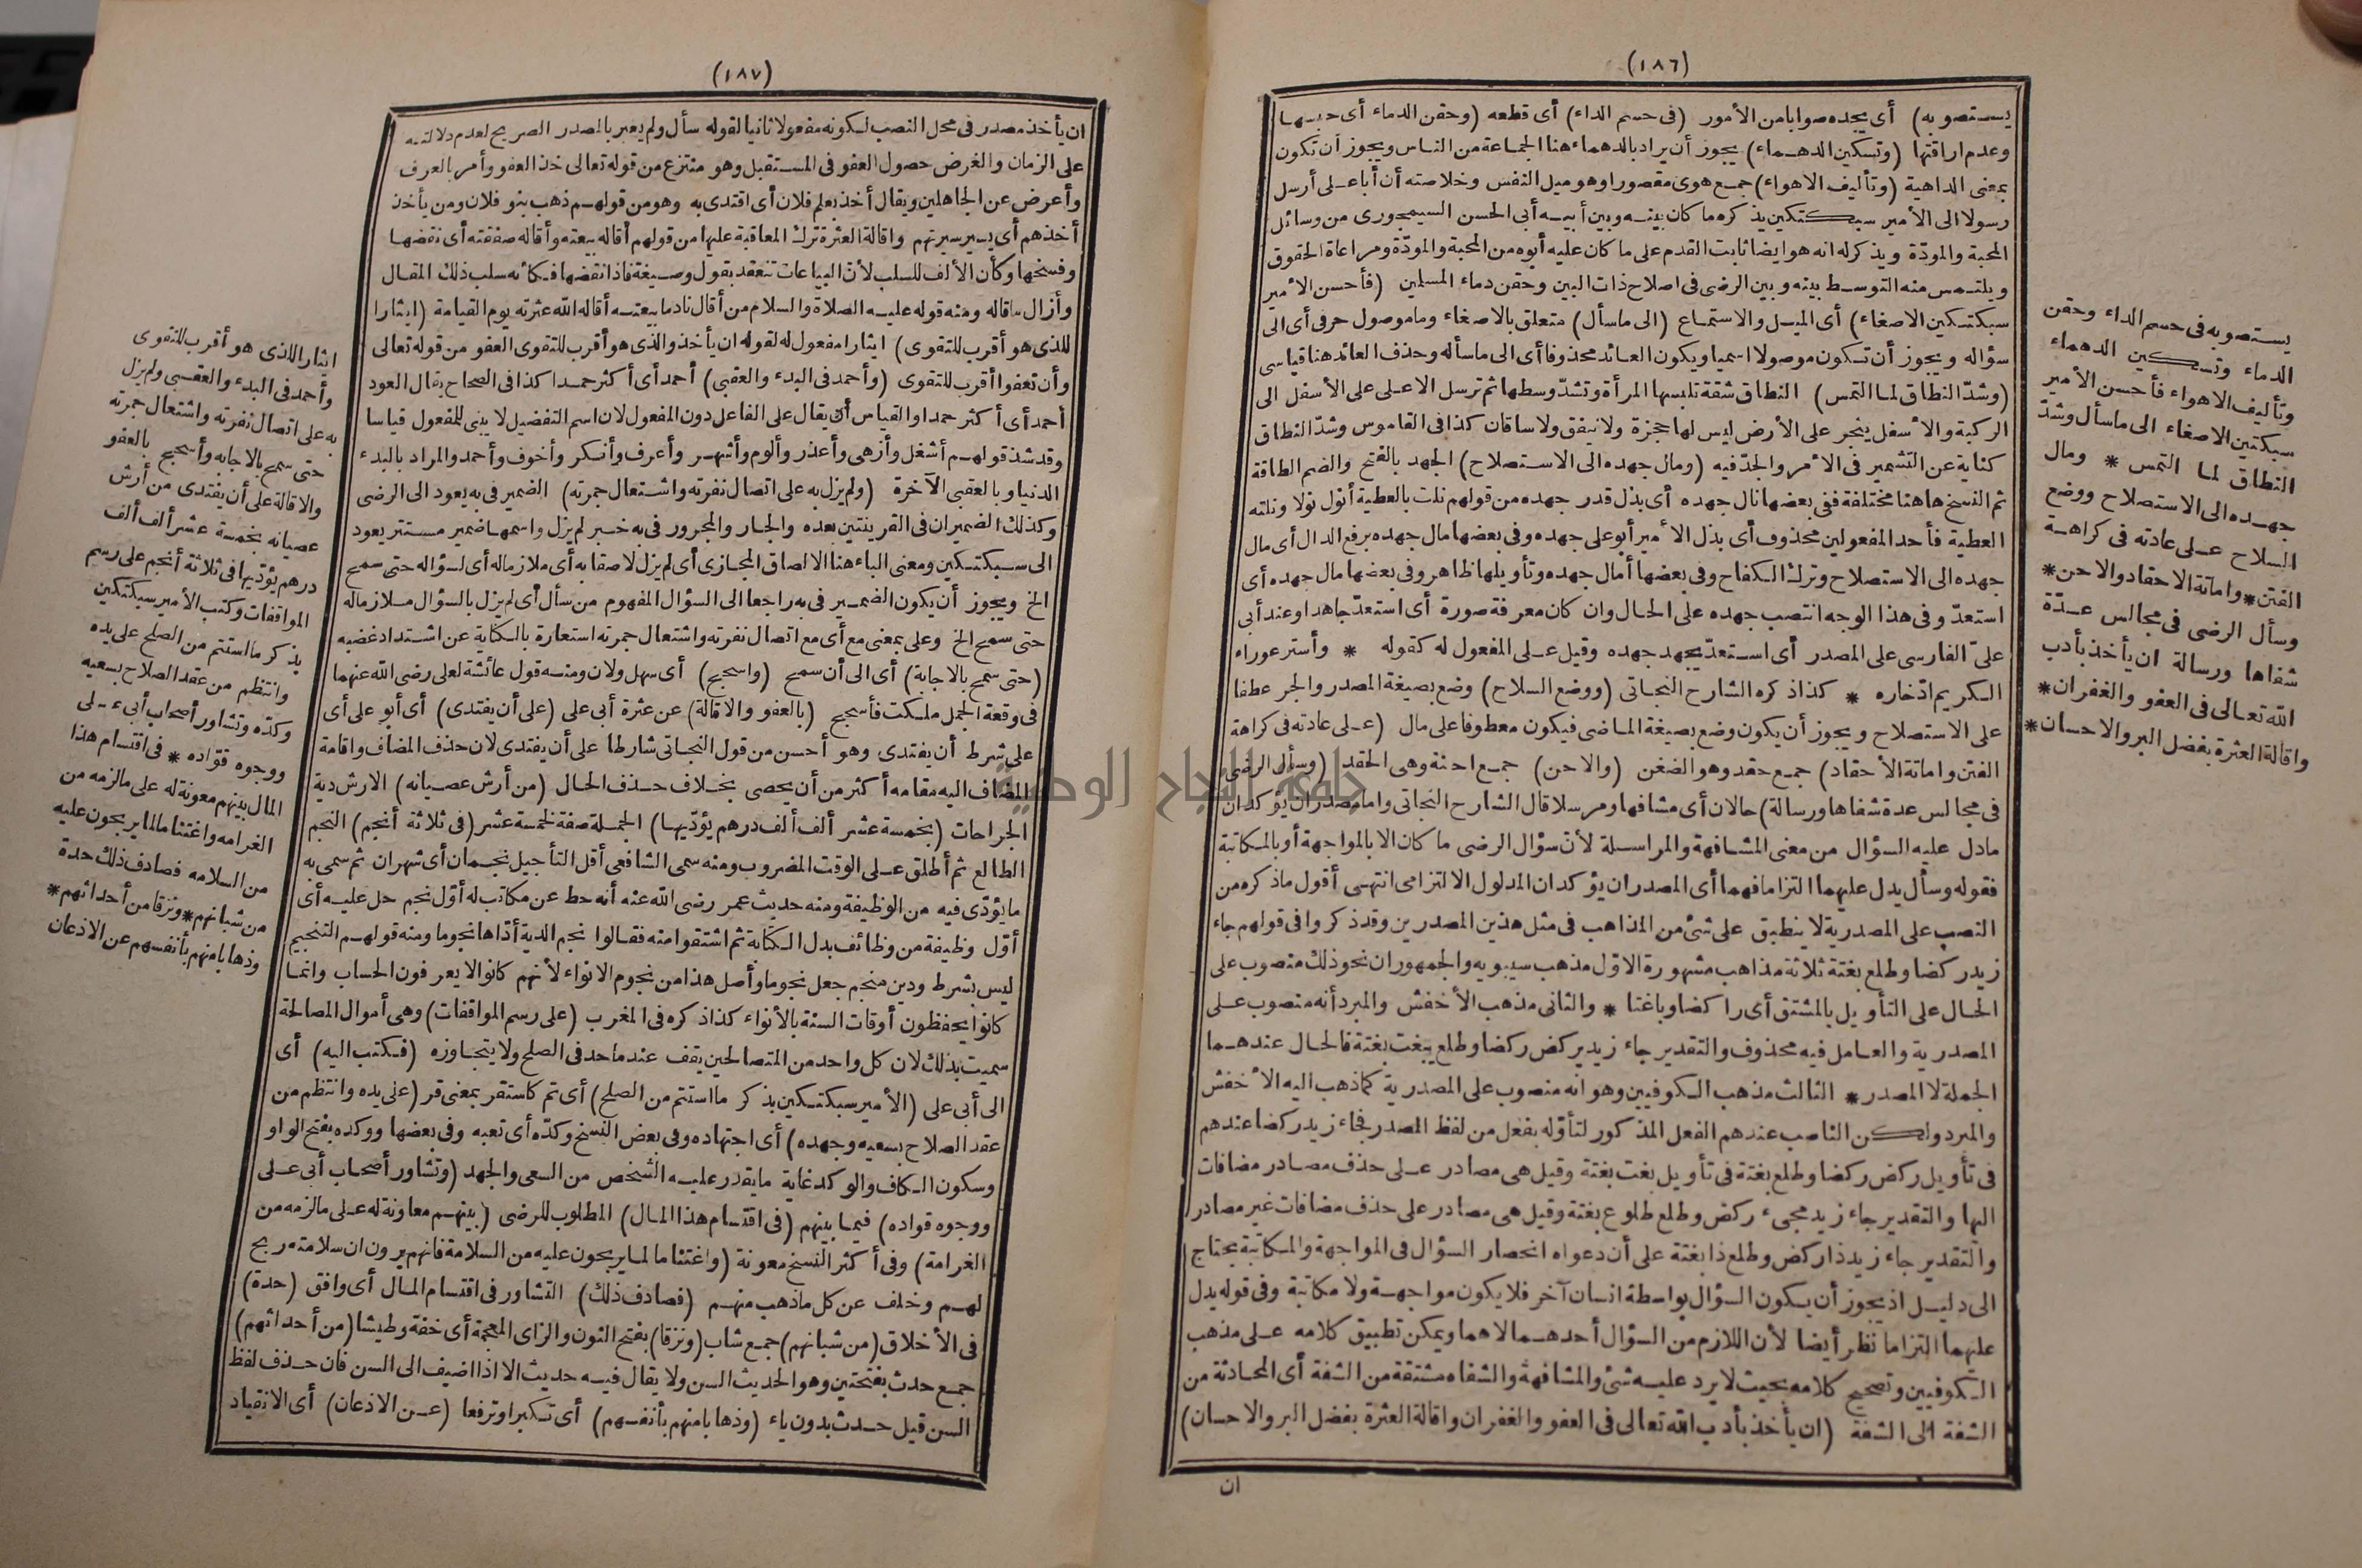 (١٨٦)
يستصوبه) أى يجده صوابا من الأمور (فى حسم الداء) أى قطعه (وحقن الدماء أى حبسها
وعدم اراقتها (وتسكين الدهماء) يجوز أن يراد بالدهماء هنا الجماعة من الناس ويجوز أن تكون
بمعنى الداهية (وتأليف الاهواء) جمع هوى مقصورا وهو ميل النفس وخلاصته أن أباعلى أرسل
رسولا الى الأمير سبكتكين يذكره ما كان بينه وبين أبيه أبى الحسن السيمجورى من وسائل
المحبة والمودّة ويذكرله انه هو ايضا ثابت القدم على ما كان عليه أبوه من المحبة والمودّة ومراعاة الحقوق
ويلتمس منه التوسط بينه وبين الرضى فى اصلاح ذات البين وحقن دماء المسلمين (فأحسن الأمير
سبكتكين الاصغاء) أى الميل والاستماع (الى ماسأل) متعلق بالاصغاء وما موصول حرفى أى الى
سؤاله ويجوز أن تكون موصولا اسميا ويكون العائد محذوفا أى الى ماسأله وحذف العائد هنا قياسى
(وشدّ النطاق لما التمس) النطاق شقة تلبسها المرأة وتشدّ وسطها ثم ترسل الاعلى على الأسفل الى
الركبة والأسفل ينجر على الأرض ليس لها حجزة ولا نيفق ولا ساقان كذا فى القاموس وشدّ النطاق
كناية عن التشمير فى الأمر والجدّ فيه (ومال جهده الى الاستصلاح) الجهد بالفتح والضم الطاقة
ثم النسخ هاهنا مختلفة ففى بعضها نال جهده أى بذل قدر جهده من قولهم نلت بالعطية أنول نولا ونلته
العطية فأحد المفعولين محذوف أى بذل الأمير أبو على جهده وفى بعضها مال جهده برفع الدال أى مال
جهده الى الاستصلاح وترك الكفاح وفى بعضها أمال جهده وتأويلها ظاهر وفى بعضها مال جهده أى
استعدّ وفى هذا الوجه انتصب جهده على الحال وان كان معرفة صورة أى استعدّ جاهدا وعند أبى
علىّ الفارسى على المصدر أى استعدّ يجهد جهده وقيل على المفعول له كقوله * وأستر عوراء
الكريم ادّخاره * كذا ذكره الشارح النجاتى (ووضع السلاح) وضع بصيغة المصدر والجر عطفا
على الاستصلاح ويجوز أن يكون وضع بصيغة الماضى فيكون معطوفا على مال (على عادته فى كراهة
الفتن واماتة الأحقاد) جمع حقد وهو الضغن (والاحن) جمع احنة وهى الحقد (وسأل الرضى
فى مجالس عدة شفاها ورسالة) حالان أى مشافها ومرسلا قال الشارح النجاتى واما مصدران يؤكدان
مادل عليه السؤال من معنى المشافهة والمراسلة لأنّ سؤال الرضى ما كان الا بالمواجهة أو بالمكاتبة
فقوله وسأل يدل عليهما التزاما فهما أى المصدران يؤكدان المدلول الالتزامى انتهى أقول ماذكره من
النصب على المصدرية لا ينطبق على شئ من المذاهب فى مثل هذين المصدرين وقد ذكروا فى قولهم جاء
زيد ركضا وطلع بغتة ثلاثة مذاهب مشهورة الاوّل مذهب سيبويه والجمهوران نحو ذلك منصوب على
الحال على التأويل بالمشتق أى راكضا وباغتا * والثانى مذهب الأخفش والمبرد أنه منصوب على
المصدرية والعامل فيه محذوف والتقدير جاء زيد يركض ركضا وطلع يبغت بغتة فالحال عندهما
الجملة لا المصدر* الثالث مذهب الكوفيين وهو انه منصوب على المصدرية كما ذهب اليه الأخفش
والمبرد ولكن الناصب عندهم الفعل المذكور لتأوّله بفعل من لفظ المصدر فجاء زيد ركضا عندهم
فى تأويل ركض ركضا وطلع بغتة فى تأويل بغت بغتة وقيل هى مصادر على حذف مصادر مضافات
اليها والتقدير جاء زيد مجىء ركض وطلع طلوع بغتة وقيل هى مصادر على حذف مضافات غير مصادر
والتقدير جاء زيد ذا ركض وطلع ذا بغتة على أن دعواه انحصار السؤال فى المواجهة والمكاتبة يحتاج
الى دليل اذ يجوز أن يكون السؤال بواسطة انسان آخر فلا يكون مواجهة ولا مكاتبة وفى قوله يدل
عليهما التزاما نظر أيضا لأن اللازم من السؤال أحدهما لا هما ويمكن تطبيق كلامه على مذهب
الكوفيين وتصحيح كلامه بحيث لا يرد عليه شئ والمشافهة والشفاه مشتقة من الشفة أى المحادثة من
الشفة الى الشفة (ان يأخذ بأدب الله تعالى فى العفو والغفران واقالة العثرة بفضل البر والاحسان)
ان
يستصوبه فى حسم الداء وحقن
الدماء وتسكين الدهماء
وتأليف الاهواء فأحسن الأمير
سبكتين الاصغاء الى ماسأل وشدّ
النطاق لما التمس * ومال
جهده الى الاستصلاح ووضع
السلاح على عادته فى كراهة
الفتن* واماتة الاحقاد والاحن*
وسأل الرضى فى مجالس عدّة
شفاها ورسالة ان يأخذ بأدب
الله تعالى فى العفو والغفران*
واقالة العثرة بفضل البر والاحسان*
(١٨٧)
ان يأخذ مصدر فى محل النصب لكونه مفعولا ثانيا لقوله سأل ولم يعبر بالمصدر الصريح لعدم دلالته
على الزمان والغرض حصول العفو فى المستقبل وهو منتزع من قوله تعالى خذ العفو وأمر بالعرف
وأعرض عن الجاهلين ويقال أخذ بعلم فلان أى اقتدى به وهو من قولهم ذهب بنو فلان ومن يأخذ
أخذهم أى يسير سيرتهم واقالة العثرة ترك المعاقبة عليها من قولهم أقاله بيعته وأقاله صفقته أى نقضها
وفسخها وكأن الألف للسلب لأن البياعات تنعقد بقول وصيغة فاذا نقضها فكأنه سلب ذلك المقال
وأزال ماقاله ومنه قوله عليه الصلاة والسلام من أقال نادما بيعته أقاله الله عثرته يوم القيامة (ايثارا
للذى هو أقرب للتقوى) ايثارا مفعول له لقوله ان يأخذ والذى هو أقرب للتقوى العفو من قوله تعالى
وأن تعفوا أقرب للتقوى (وأحمد فى البدء والعقبى) أحمد أى أكثر حمدا كذا فى الصحاح يقال العود
أحمد أى أكثر حمدا والقياس أن يقال على الفاعل دون المفعول لان اسم التفضيل لا يبنى للمفعول قياسا
وقد شذ قولهم أشغل وأزهى وأعذر وألوم وأشهر وأعرف وأنكر وأخوف وأحمد والمراد بالبدء
الدنيا وبالعقبى الآخرة (ولم يزل به على اتصال نفرته واشتعال جمرته) الضمير فى به يعود الى الرضى
وكذلك الضميران فى القرينتين بعده والجار والمجرور فى به خبر لم يزل واسمها ضمير مستتر يعود
الى سبكتكين ومعنى الباء هنا الالصاق المجازى أى لم يزل لاصقا به أى ملازما له أى لسؤاله حتى سمح
الخ ويجوز أن يكون الضمير فى به راجعا الى السؤال المفهوم من سأل أى لم يزل بالسؤال ملازما له
حتى سمح الخ وعلى بمعنى مع أى مع اتصال نفرته واشتعال جمرته استعارة بالكناية عن اشتداد غضبه
(حتى سمح بالاجابة) أى الى أن سمح (واسجح) أى سهل ولان ومنه قول عائشة لعلى رضى الله عنهما
فى وقعة الجمل ملكت فأسجح (بالعفو والاقالة) عن عثرة أبى على (على أن يفتدى) أى أبو على أى
على شرط أن يفتدى وهو أحسن من قول النجاتى شارطا على أن يفتدى لان حذف المضاف واقامة
المضاف اليه مقامه أكثر من أن يحصى بخلاف حذف الحال (من أرش عصيانه) الارش دية
الجراحات (بخمسة عشر ألف ألف درهم يؤدّيها) الجملة صفة لخمسة عشر (فى ثلاثة أنجم) النجم
الطالع ثم أطلق على الوقت المضروب ومنه سمى الشافعى أقل التأجيل نجمان أى شهران ثم سمى به
ما يؤدّى فيه من الوظيفة ومنه حديث عمر رضى الله عنه أنه حط عن مكاتب له أوّل نجم حل عليه أى
أوّل وظيفة من وظائف بدل الكتابة ثم اشتقوا منه فقالوا نجم الدية أدّاها نجوما ومنه قولهم التنجيم
ليس بشرط ودين منجم جعل نجوما وأصل هذا من نجوم الانواء لأنهم كانوا لا يعرفون الحساب وانما
كانوا يحفظون أوقات السنة بالأنواء كذا ذكره فى المغرب (على رسم المواقفات) وهى أموال المصالحة
سميت بذلك لان كل واحد من المتصالحين يقف عند ما حد فى الصلح ولا يتجاوزه (فكتب اليه) أى
الى أبى على (الأمير سبكتكين يذكر ما استتم من الصلح) أى تم كاستقر بمعنى قر (على يده وانتظم من
عقد الصلاح بسعيه وجهده) أى اجتهاده وفى بعض النسخ وكدّه أى تعبه وفى بعضها ووكده بفتح الواو
وسكون الكاف والوكد غاية ما يقدر عليه الشخص من السعى والجهد (وتشاور أصحاب أبى على
ووجوه قواده) فيما بينهم (فى اقتسام هذا المال) المطلوب للرضى (بينهم معاونة له على مالزمه من
الغرامة) وفى أكثر النسخ معونة (واغتناما لما يربحون عليه من السلامة فانهم يرون ان سلامته ربح
لهم وخلف عن كل ما ذهب منهم (فصادف ذلك) التشاور فى اقتسام المال أى وافق (حدة)
فى الأخلاق (من شبانهم) جمع شاب (ونزقا) بفتح النون والزاى المعجمة أى خفة وطيشا (من أحداثهم)
جمع حدث بفتحتين وهو الحديث السن ولا يقال فيه حديث الا اذا اضيف الى السن فان حذف لفظ
السن قيل حدث بدون ياء (وذهابا منهم بأنفسهم) أى تكبرا وترفعا (عن الاذعان) أى الانقياد
ايثارا للذى هو أقرب للتقوى
وأحمد فى البدء والعقبى ولم يزل
به على اتصال نفرته واشتعال جمرته
حتى سمح بالاجابه وأسجح بالعفو
والاقالة على أن يفتدى من أرش
عصيانه بخمسة عشر ألف ألف
درهم يؤدّيها فى ثلاثة أنجم على رسم
المواقفات وكتب الأمير سبكتكين
يذكر ما استتم من الصلح على يده
وانتظم من عقد الصلاح بسعيه
وكدّه وتشاور أصحاب أبى على
ووجوه قوّاده * فى اقتسام هذا
المال بينهم معونة له على مالزمه من
الغرامه واغتناما لما يربحون عليه
من السلامه فصادف ذلك حدة
من شبانهم* ونزقا من أحداثهم*
وذهابا منهم بأنفسهم عن الاذعان
جامعة النجاح الوطنية